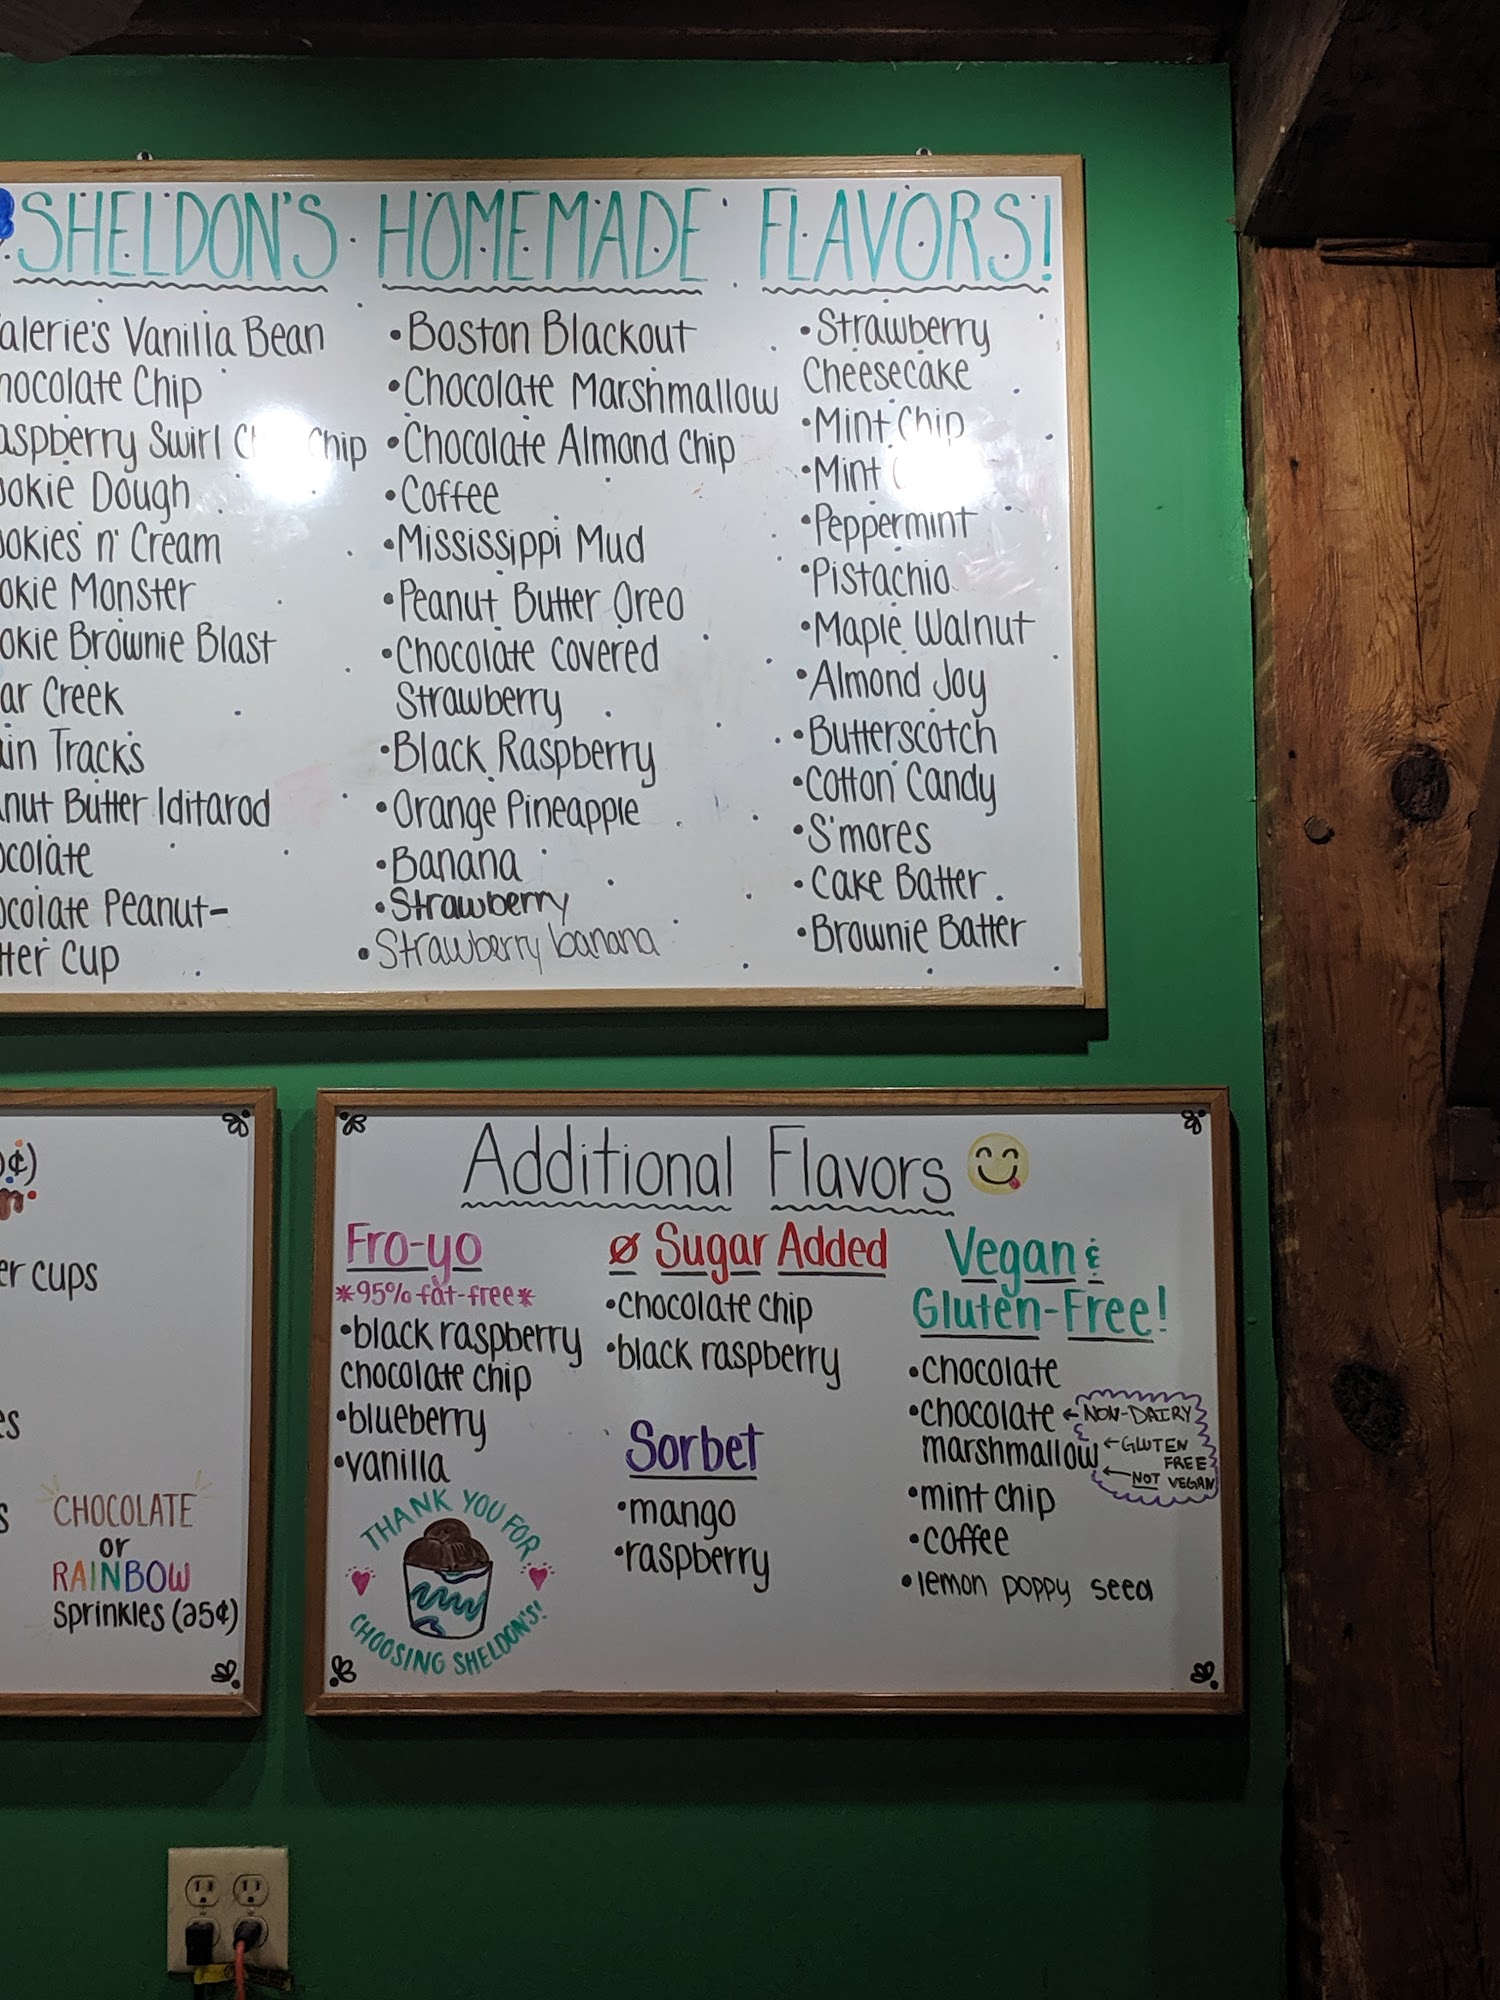 SHELDON'S HOMEMADE FLAVORS!
Vanilla Bean
Chip
Swirl Chip
Dough
n' Cream
Monster
Brownie Blast
Creek
Tracks
Butter Iditarod
Peanut-
Cup
•Boston Blackout
•Chocolate Marshmallow
•Chocolate Almond Chip
•Coffee
•Mississippi Mud
•Peanut Butter Oreo
•Chocolate covered
Strawberry
•Black Raspberry
•Orange Pineapple
•Banana
•Strawberry
•Strawberry banana
•Strawberry
Cheesecake
•Mint Chip
•Mint
•Peppermint
•Pistachio
•Maple Walnut
•Almond Joy
•Butterscotch
•Cotton Candy
•S'mores
•Cake Batter
•Brownie Batter
cups
CHOCOLATE
or
RAINBOW
Sprinkles (25¢)
Additional Flavors
Fro-yo
*95% fat-free*
•black raspberry
chocolate chip
•blueberry
•vanilla
THANK YOU FOR
CHOOSING SHELDON'S!
Ø Sugar Added
•chocolate chip
•black raspberry
Sorbet
•mango
•raspberry
Vegan &
Gluten-Free!
•chocolate
•chocolate ← NON-DAIRY
marshmallow ← GLUTEN
FREE
← NOT VEGAN
•mint chip
•coffee
•lemon poppy seed